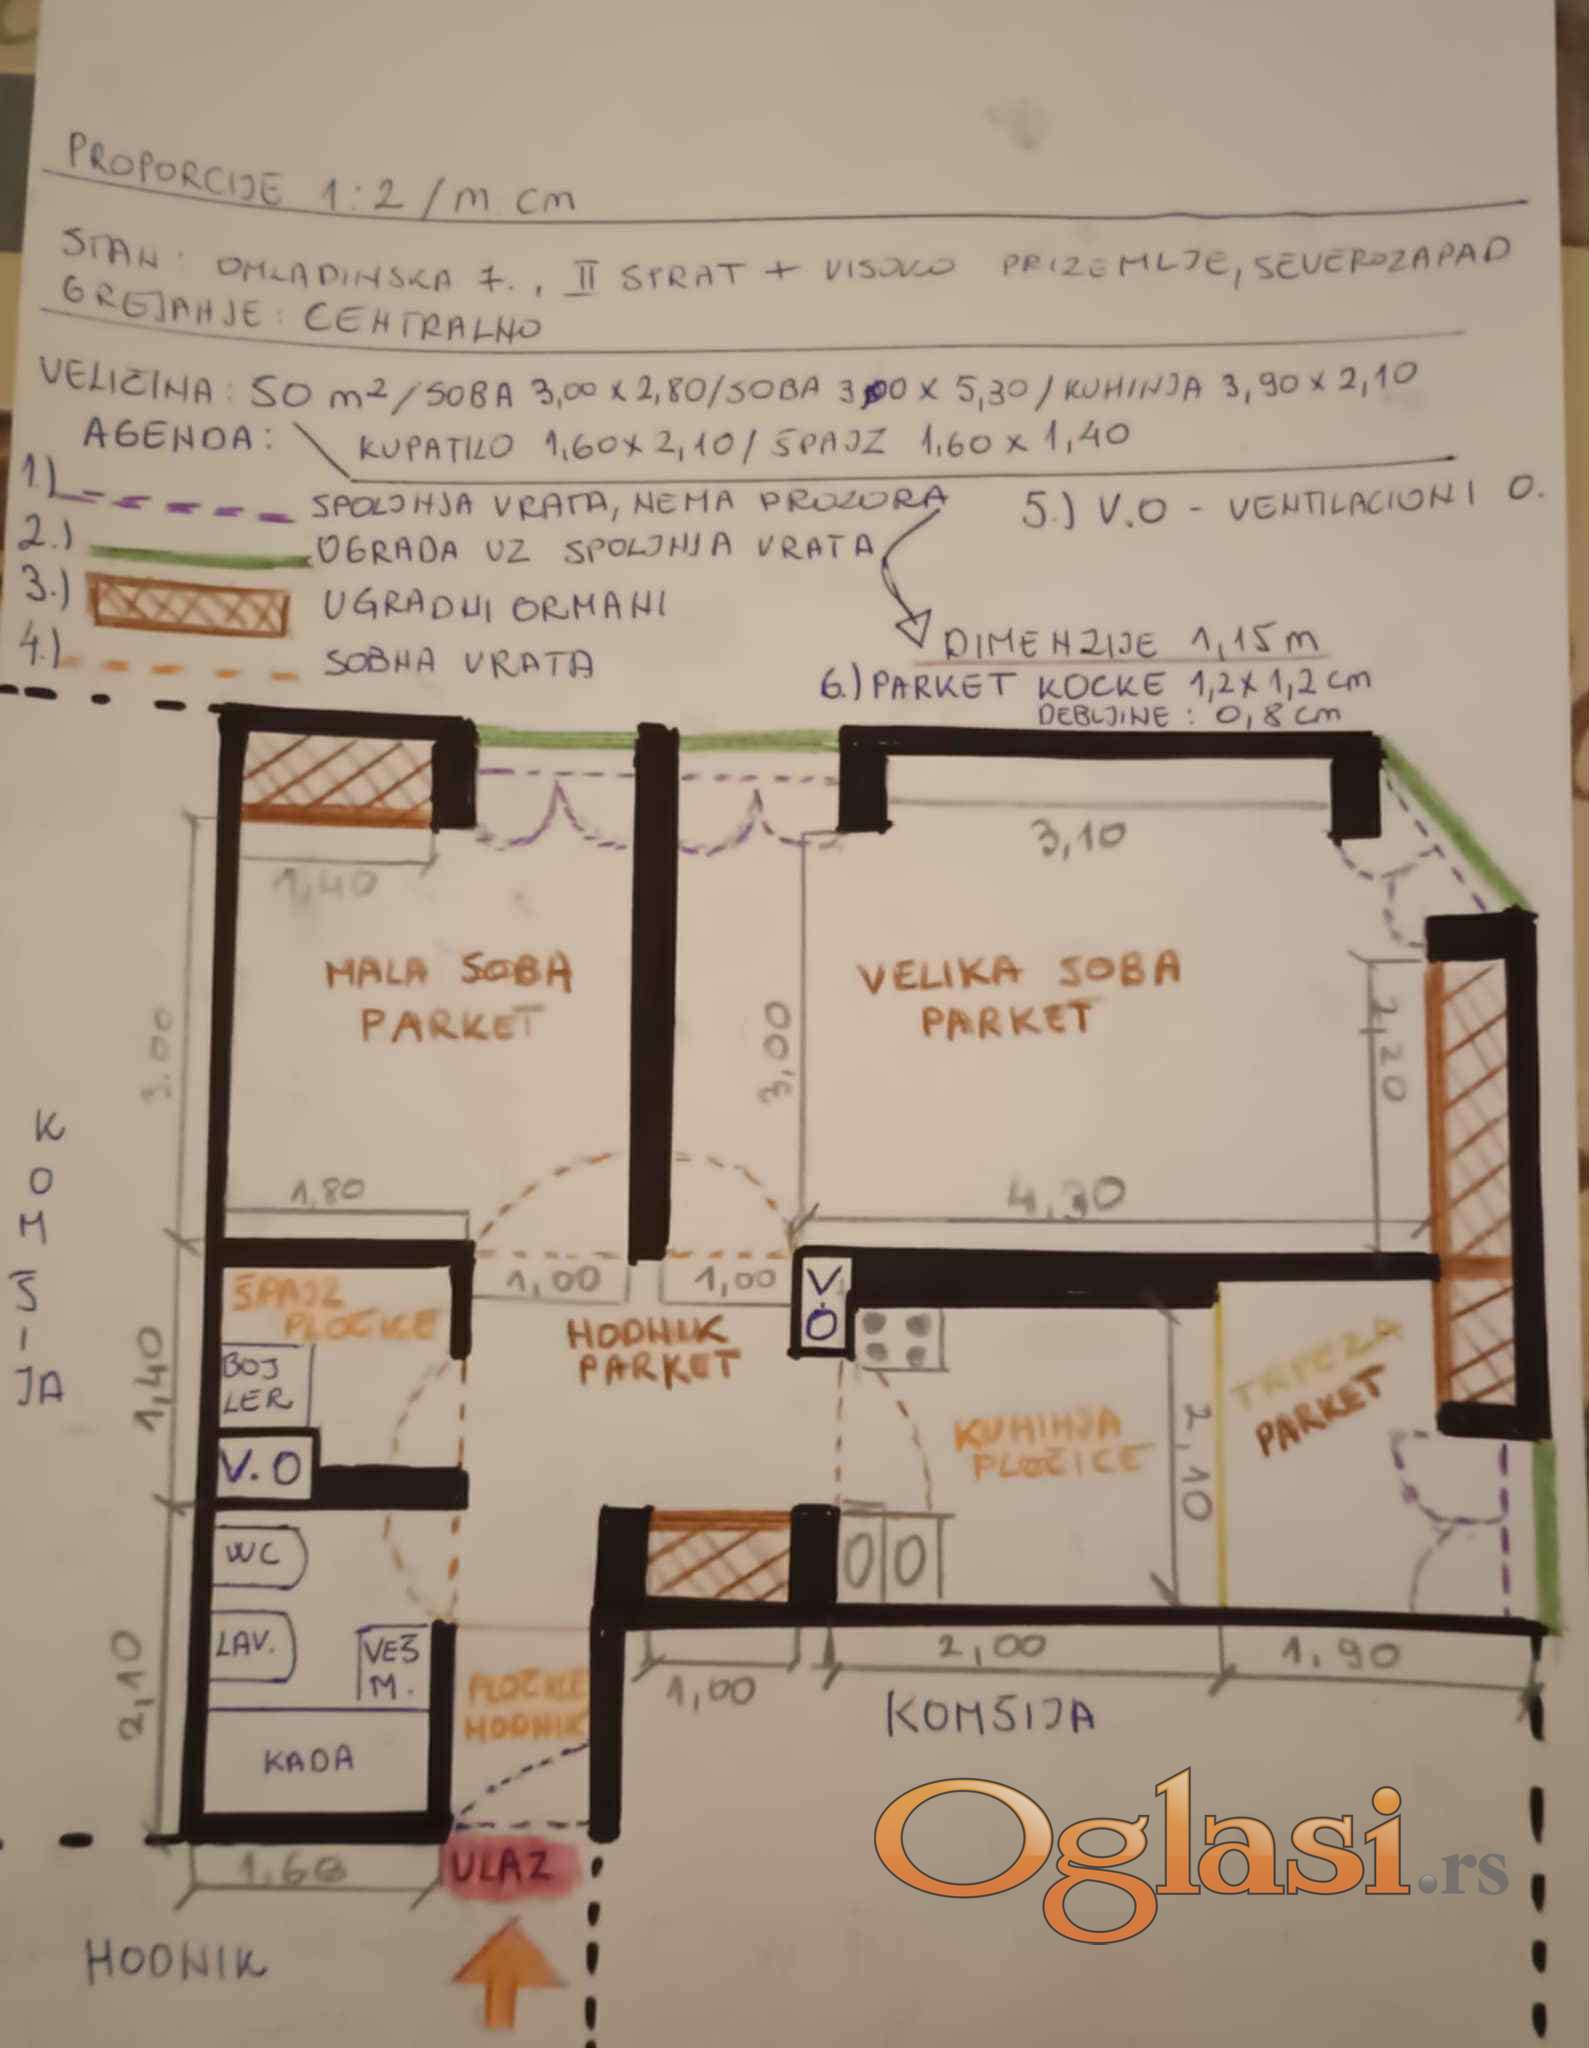 PROPORCIJE 1:2 /m cm
STAN: OMLADINSKA 7., II SPRAT + VISOKO PRIZEMLJE, SEVEROZAPAD
GREJANJE: CENTRALNO
VELIČINA: 50 m2/SOBA 3,00 x 2,80/SOBA 3,00 x 5,30/KUHINJA 3,90 x 2,10
AGENDA: KUPATILO 1,60 x 2,10/ ŠPAJZ 1,60 x 1,40
1.) SPOLJNJA VRATA, NEMA PROZORA
5.) V.O - VENTILACIONI O.
2.) OGRADA UZ SPOLJNJA VRATA
3.) UGRADNI ORMANI
DIMENZIJE 1,15m
4.) SOBNA VRATA
6.) PARKET KOCKE 1,2 x 1,2 cm
DEBLJINE: 0,8 cm
1,40
3,10
MALA SOBA
PARKET
VELIKA SOBA
PARKET
3.00
3,00
2,20
KOMŠIJA
1,80
4,30
1,00
1,00
V.O
ŠPAJZ
PLOČICE
HODNIK
PARKET
TRPEZA
PARKET
BOJ
LER
1,40
KUHINJA
PLOČICE
2,10
V.O
WC
LAV.
VEŠ
M.
2,10
2,00
1,90
1,00
PLOČICE
HODNIK
KOMŠIJA
KADA
1,60
ULAZ
HODNIK
Oglasi.rs